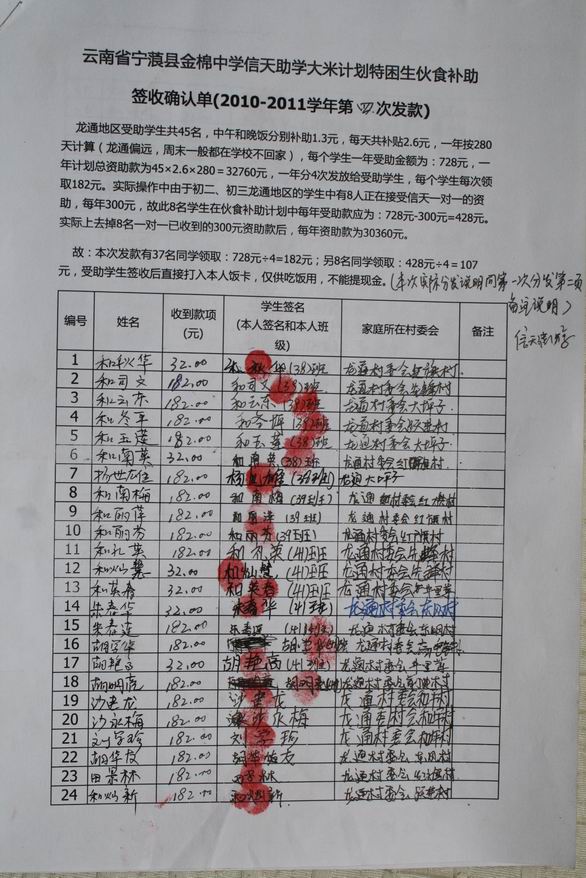 云南省宁蒗县金棉中学信天助学大米计划特困生伙食补助
签收确认单(2010-2011学年第四次发款)
龙通地区受助学生共45名，中午和晚饭分别补助1.3元，每天共补贴2.6元，一年按280
天计算（龙通偏远，周末一般都在学校不回家），每个学生一年受助金额为：728元，一
年计划总资助款为45×2.6×280＝32760元，一年分4次发放给受助学生，每个学生每次领
取182元。实际操作中由于初二、初三龙通地区的学生中有8人正在接受信天一对一的资
助，每年300元，故此8名学生在伙食补助计划中每年受助款应为：728元-300元=428元。
实际上去掉8名一对一已收到的300元资助款后，每年资助款为30360元。
故：本次发款有37名同学领取：728元÷4=182元；另8名同学领取：428元÷4＝107
元，受助学生签收后直接打入本人饭卡，仅供吃饭用，不能提现金。(本次实际分发说明同第一次分发第二页
备注说明)
信天助学
编号 姓名 收到款项(元) 学生签名(本人签名和本人班级) 家庭所在村委会 备注
1 和秋华 32.00 (38)班 龙通村委会红旗村
2 和司文 182.00 和司文(38)班 龙通村委会先锋村
3 和云东 182.00 和云东(38)班 龙通村委会大坪子
4 182.00 (38)班 龙通村委会跃进村
5 和玉莲 182.00 和玉莲(38)班 龙通村委会大坪子
6 和南英 32.00 和南英(38)班 龙通村委会红旗村
7 杨世龙位 182.00 (39)班 龙通大坪子
8 和南梅 182.00 和南梅(39)班 龙通村委会红旗村
9 和丽萍 182.00 (39)班 龙通村委会红旗村
10 和丽芬 182.00 和丽芬(39)班 龙通村委会红旗村
11 和礼英 182.00 和礼英(41)班 龙通村委会先锋村
12 和灿慧 32.00 和灿慧(41)班 龙通村委会先锋村
13 和英春 32.00 和英春(41)班 龙通村委会
14 朱春华 32.00 朱春华(41)班 龙通村委会东风村
15 朱春莲 182.00 (41)班 龙通村委会东风村
16 胡学华 182.00 龙通村委会
17 胡艳高 32.00 胡艳高(41)班 龙通村委会
18 胡明亮 182.00 龙通村委会
19 沙建龙 182.00 沙建龙 龙通村委会和平村
20 沙永梅 182.00 沙永梅 龙通村委会和平村
21 刘学珍 182.00 刘学珍 龙通村委会和平村
22 胡华友 182.00 龙通村委会东风村
23 田景林 182.00 龙通村委会
24 和灿新 182.00 和灿新 龙通村委会跃进村